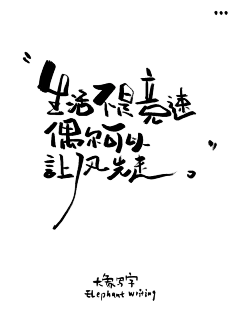 "生活不是竞速
偶尔可以
让风先走。"
大象写字
Elephant writing